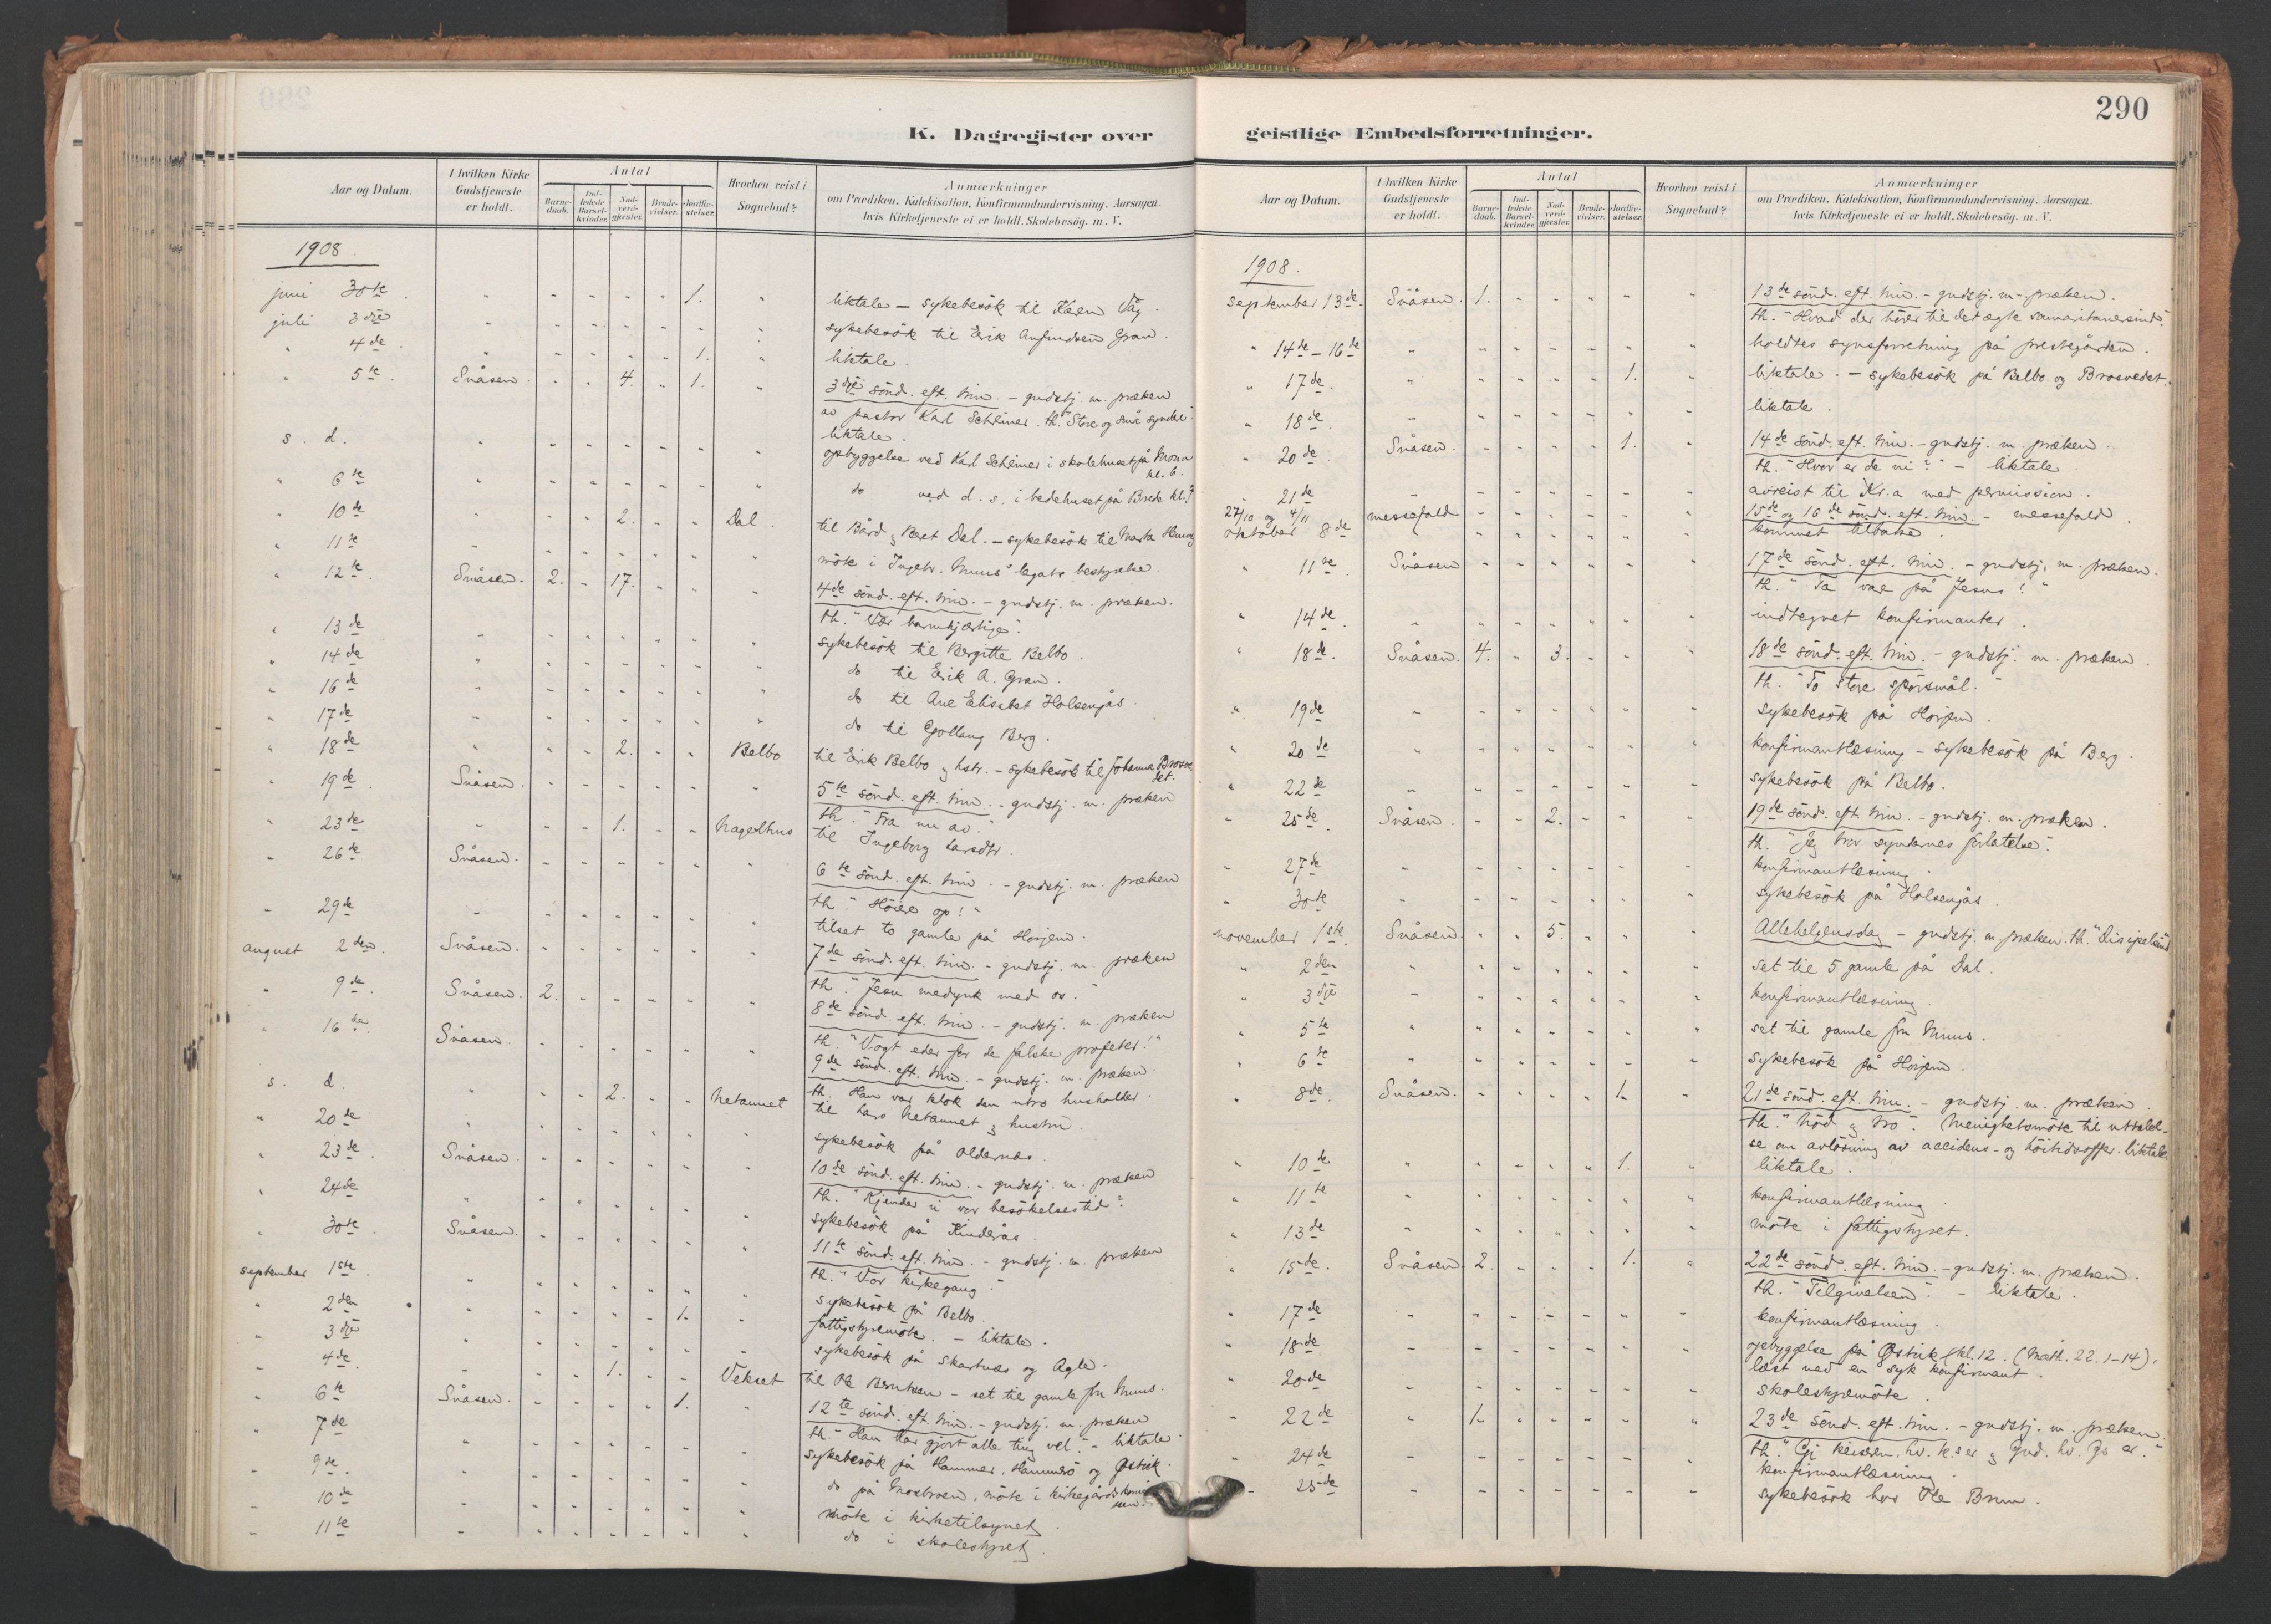 290
K. Dagregister over
Aar og Datum.
I hvilken Kirke Gudstjeneste er holdt.
Antal
Barne-daab.
Ind-ledede Barsel-kvinder.
Nad-verd-gjester.
Brude-vielser.
Jordfæ-stelser.
Hvorhen reist i Sognebud?
Anmærkninger
om Prædiken. Katekisation, Konfirmandundervisning. Aarsagen,
hvis Kirketjeneste ei er holdt. Skolebesög. m. V.
1908.
juni 30te. " " " " " 1. " liktale – sykebesök til Karen Våg.
juli 3dje " " " " " " " sykebesök til Erik Anfindsen Gran.
" 4de. " " " " " 1. " liktale.
" 5te. Snåsen. " " 4. " 1. " 3dje sönd. eft. trin. – gudstj. m. præken
av pastor Karl Schöiner. th. "Store og små syndere."
liktale.
s. d. " " " " " " " opbyggelse ved Karl Schöiner i skolehuset på
kl. 6.
" 6te " " " " " " " do ved d. s. i bedehuset på Brede kl.
" 10de " " " 2. " " Dal. til Bård & Beret Dal. – sykebesök til Marta
" 11te " " " " " " " möte i Ingebr. Muus' legats bestyrelse.
" 12te. Snåsen. 2. " 17. " " " 4de sönd. eft. trin. – gudstj. m. præken.
th. "Vær barmhjærtige".
" 13de " " " " " " " sykebesök til Bergitte Belbo.
" 14de " " " " " " " do til Erik A. Gran.
" 16de " " " " " " " do til Ane Elisabet Holsengjas.
" 17de " " " " " " " do til Gollaug Berg.
" 18de " " " 2. " " Belbo til Erik Belbo & hstr. – sykebesök til Johanna Brosve
det.
" 19de. Snåsen. " " " " " " 5te sönd. eft. trin. – gudstj. m. præken
th. "Fra nu av."
" 23de " " " 1. " " Nagelhus til Ingeborg Larsdtr.
" 26te Snåsen. " " " " " " 6te sönd. eft. trin. – gudstj. m. præken
th. "Höiere op!"
" 29de " " " " " " " tilset to gamle på Horjem.
august 2den. Snåsen. " " " " " " 7de sönd. eft. trin. – gudstj. m. præken
th. "Jesu medynk med os."
" 9de. Snåsen. 2. " " " " " 8de sönd. eft. trin. – gudstj. m. præken
th. "Vogt eder for de falske profeter!"
" 16de. Snåsen. " " " " " " 9de sönd. eft. trin. – gudstj. m. præken.
th. "Han var klok den utro husholder.
s. d. " " " 2. " " til Lars & hustru.
" 20de " " " " " " " sykebesök på Oldernes.
" 23de. Snåsen. " " " " " " 10de sönd. eft. trin. – gudstj. m. præken
th. "Kjender vi vor besökelsestid?"
" 24de " " " " " " " sykebesök på Kinderås.
" 30te. Snåsen. " " " " " " 11te sönd. eft. trin. – gudstj. m. præken
th. "Vor kirkegang."
september 1ste. " " " " " " " sykebesök på Belbo.
" 2den " " " " " 1. " fattigstyremöte. – liktale.
" 3dje " " " " " " " sykebesök på Skartnes og Agle.
" 4de. " " " 1. " " Vekset til Ole Berntsen – set til gamle fru Muus.
" 6te Snåsen. " " " " 1. " 12te sönd. eft. trin. – gudstj. m. præken
th. "Han har gjort alle ting vel." – liktale.
" 7de " " " " " " " sykebesök på Hammer, Hammerö og
" 9de. " " " " " " " do på Mosbroen, möte i
" 10de " " " " " " " möte i kirketilsynet.
" 11te " " " " " " " do i skolestyret.
geistlige Embedsforretninger.
Aar og Datum.
I hvilken Kirke Gudstjeneste er holdt.
Antal
Barne-daab.
Ind-ledede Barsel-kvinder.
Nad-verd-gjester.
Brude-vielser.
Jordfæ-stelser.
Hvorhen reist i Sognebud?
Anmærkninger
om Prædiken. Katekisation, Konfirmandundervisning. Aarsagen,
hvis Kirketjeneste ei er holdt. Skolebesög. m. V.
1908.
september 13de. Snåsen. 1. " " " " " 13de sönd. eft. trin. – gudstj. m. præken.
th. "Hvad der hörer til det ægte samaritanersind."
" 14de – 16de " " " " " " " holdtes synsforretning på prestegården.
" 17de. " " " " " 1. " liktale. – sykebesök på Belbo og Brosvedet.
" 18de " " " " " " " liktale.
" 20de Snåsen. " " " " 1. " 14de sönd. eft. trin. – gudstj. m. præken.
th. "Hvor er de ni?" – liktale.
" 21de " " " " " " " avreist til Kr.a med permission.
27/10 og 4/11 messefald " " " " " " 15de og 16de sönd. eft. trin. – messefald.
oktober 8de " " " " " " " kommet tilbake.
" 11te Snåsen " " " " " " 17de sönd. eft. trin. – gudstj. m. præken.
th. "Ta vare på Jesus!"
" 14de. " " " " " " " indtegnet konfirmanter.
" 18de. Snåsen. 4. " 3. " " " 18de sönd. eft. trin. – gudstj. m. præken.
th. "To store spörsmål."
" 19de " " " " " " " sykebesök på Horjem.
" 20de " " " " " " " konfirmantlæsning – sykebesök på Berg.
" 22de " " " " " " " sykebesök på Belbo.
" 25de. Snåsen. " " 2. " " " 19de sönd. eft. trin. – gudstj. m. præken.
th. "Jeg tror syndernes forlatelse."
" 27de " " " " " " " konfirmantlæsning.
" 30te " " " " " " " sykebesök på Holsengjas.
november 1ste. Snåsen. " " 5. " " " Allehelgensdag – gudstj. m præken. th. "
" 2den " " " " " " " set til 5 gamle på Dal.
" 3dje " " " " " " " konfirmantlæsning.
" 5te " " " " " " " set til gamle fru Muus.
" 6te " " " " " " " sykebesök på Horjem.
" 8de. Snåsen. " " " " 1. " 21de sönd. eft. trin. – gudstj. m. præken.
th. "Nöd & tro". Menighetsmöte til uttalel-
se om avlösning av accidens- og höitidsoffer. liktale.
" 10de " " " " " 1. " liktale.
" 11te " " " " " " " konfirmantlæsning.
" 13de " " " " " " " möte i fattigstyret.
" 15de. Snåsen. 2. " " " 1. " 22de sönd. eft. trin. – gudstj. m. præken.
th. "Tilgivelsen." – liktale.
" 17de " " " " " " " konfirmantlæsning.
" 18de " " " " " " " opbyggelse på kl. 12. (Math. 22. 1–14).
læst med en syk konfirmant.
" 20de " " " " " " " skolestyremöte.
" 22de " 1. " " " " " 23de sönd. eft. trin. – gudstj. m. præken.
th. "Gi keiseren hv. k.s er & Gud. hv. Gs er."
" 24de " " " " " " " konfirmantlæsning.
" 25de " " " " " " " sykebesök hos Ole Brun.